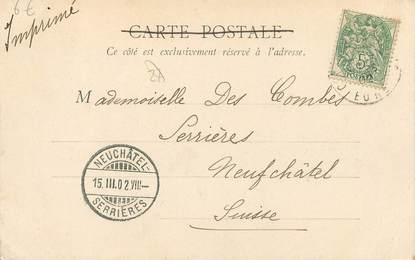 6€
Imprimé
CARTE POSTALE
Ce côté est exclusivement réservé à l'adresse.
5
Mademoiselle Des Combes
Serrières
Neufchâtel
Suisse
NEUCHÂTEL-
15.III.02.VIII-
SERRIÈRES